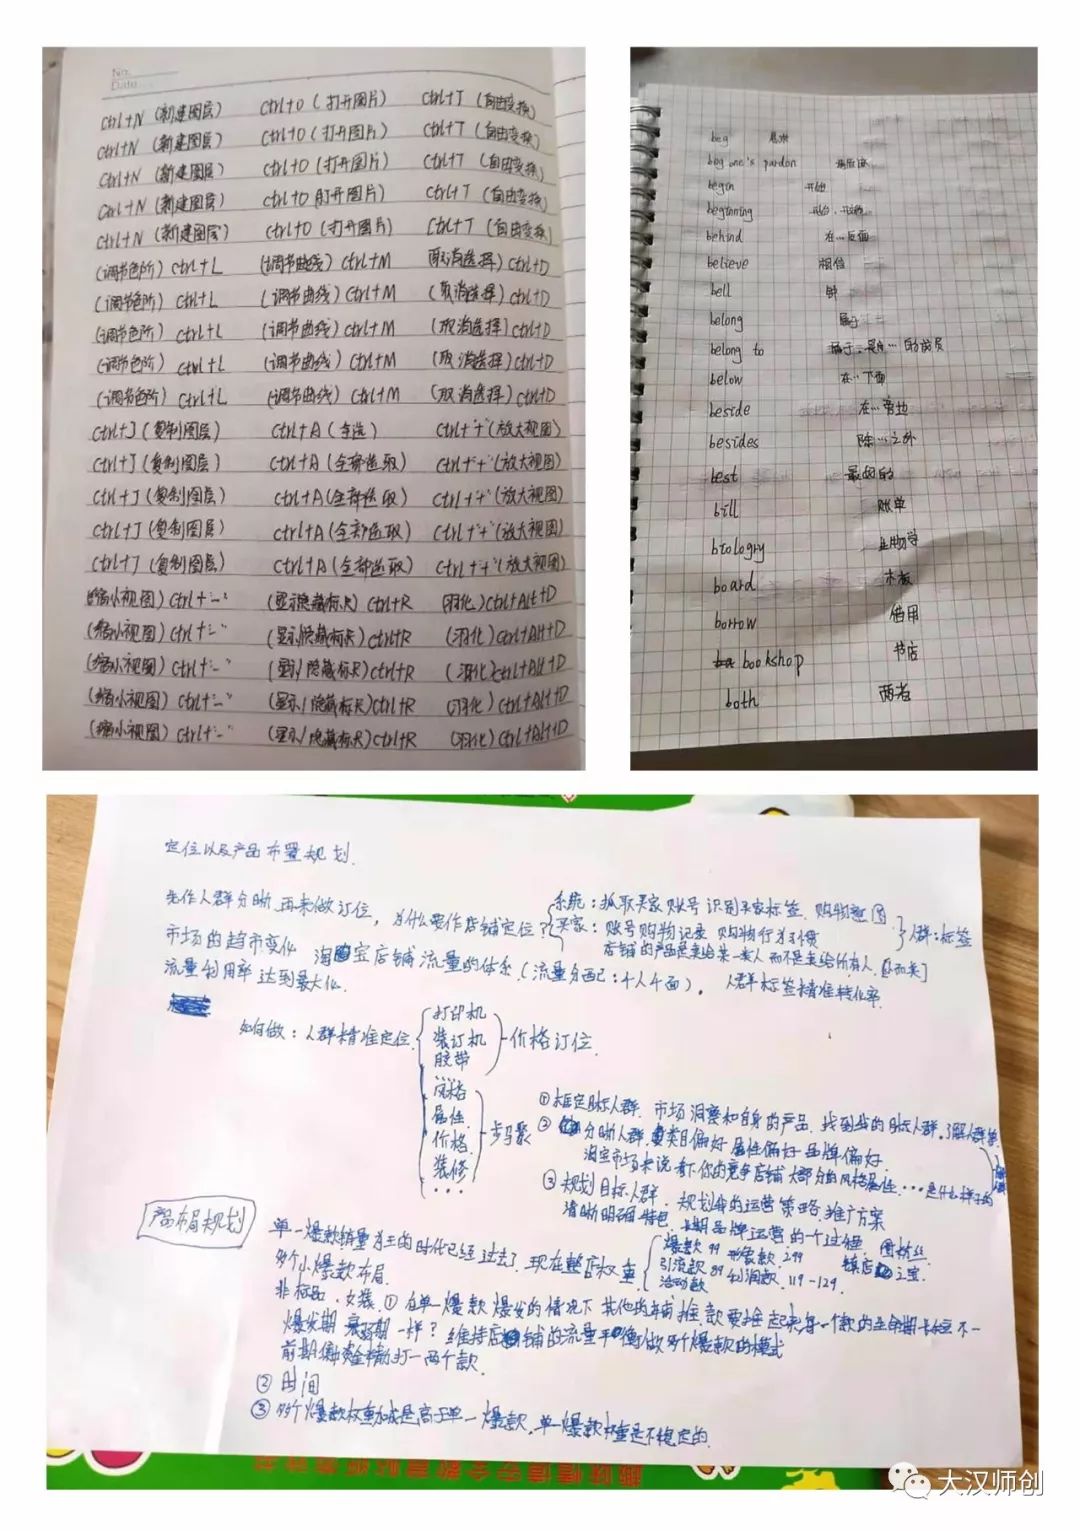 No.
Date
ctrl+N (新建图层) ctrl+O (打开图片) ctrl+T (自由变换)
ctrl+N (新建图层) ctrl+O (打开图片) ctrl+T (自由变换)
ctrl+N (新建图层) ctrl+O (打开图片) ctrl+T (自由变换)
ctrl+N (新建图层) ctrl+O 打开图片) ctrl+T (自由变换)
ctrl+N (新建图层) ctrl+O (打开图片) ctrl+T (自由变换)
(调节色阶) ctrl+L (调节曲线) ctrl+M 取消选择) ctrl+D
(调节色阶) ctrl+L (调节曲线) ctrl+M (取消选择) ctrl+D
(调节色阶) ctrl+L (调节曲线) ctrl+M (取消选择) ctrl+D
(调节色阶) ctrl+L (调节曲线) ctrl+M (取消选择) ctrl+D
(调节色阶) ctrl+L (调节曲线) ctrl+M (取消选择) ctrl+D
ctrl+J (复制图层) ctrl+A (全选) ctrl+"+"(放大视图)
ctrl+J (复制图层) ctrl+A (全部选取) ctrl+"+"(放大视图)
ctrl+J (复制图层) ctrl+A (全部选取) ctrl+"+"(放大视图)
ctrl+J (复制图层) ctrl+A (全部选取) ctrl+"+"(放大视图)
ctrl+J (复制图层) ctrl+A (全部选取) ctrl+"+"(放大视图)
(缩小视图) ctrl+"-" (显示隐藏标尺) ctrl+R (羽化) ctrl+Alt+D
(缩小视图) ctrl+"-" (显示/隐藏标尺) ctrl+R (羽化) ctrl+Alt+D
(缩小视图) ctrl+"-" (显示/隐藏标尺) ctrl+R (羽化) ctrl+Alt+D
(缩小视图) ctrl+"-" (显示/隐藏标尺) ctrl+R (羽化) ctrl+Alt+D
(缩小视图) ctrl+"-" (显示/隐藏标尺) ctrl+R (羽化) ctrl+Alt+D
beg 恳求
beg one's pardon
begin 开始
beginning 开始
behind 在…后面
believe 相信
bell 钟
belong 属于
belong to 属于 的成员
below 在…下面
beside 在…旁边
besides 除…之外
best 最好的
bill 账单
biology 生物学
board 木板
borrow 借用
bookshop 书店
both 两者
定位以及产品布置规划.
先作人群分晰 再来做订位, 为什么要作店铺定位?
系统: 抓取买家账号 识别买家标签. 购物意图
买家: 账号购物记录 购物行为习惯
人群:标签
店铺的产品是卖给某一类人 而不是卖给所有人.
市场的趋市变化 淘宝店铺流量的体系.(流量分配:千人千面).
人群标签精准转化率.
流量利用率达到最大化.
如何做: 人群精准定位
打印机
装订机
胶带
价格订位.
……
风格
属性
价格
装修
…
步骤
① 框定目标人群. 市场洞察和自身的产品. 找到我的目标人群.了解人群
② 分晰人群 类目偏好 属性偏好 品牌偏好
淘宝市场来说 看下你的竞争店铺大部分的风格属性. …是什么样子的
③ 规划目标人群. 规划我的运营策略.推广方案
清晰明确特色. 长期品牌运营的一个过程.
产品布局规划
单一爆款销量为王的时代已经过去了. 现在整店权重.
爆款 99 形象款 299
引流款 89 利润款. 119-129.
活动款
镇店之宝.
多个小爆款布局.
非标品. 女装. ① 在单一爆款爆发的情况下 其他的 款要推起来 每一个款的生命周期
爆发期 衰弱期 一样? 维持店铺的流量平衡做多个爆款的模式
前期 打一两个款.
② 时间
③ 多个爆款权重加成是高于单一爆款. 单一爆款权重是不稳定的.
大汉师创